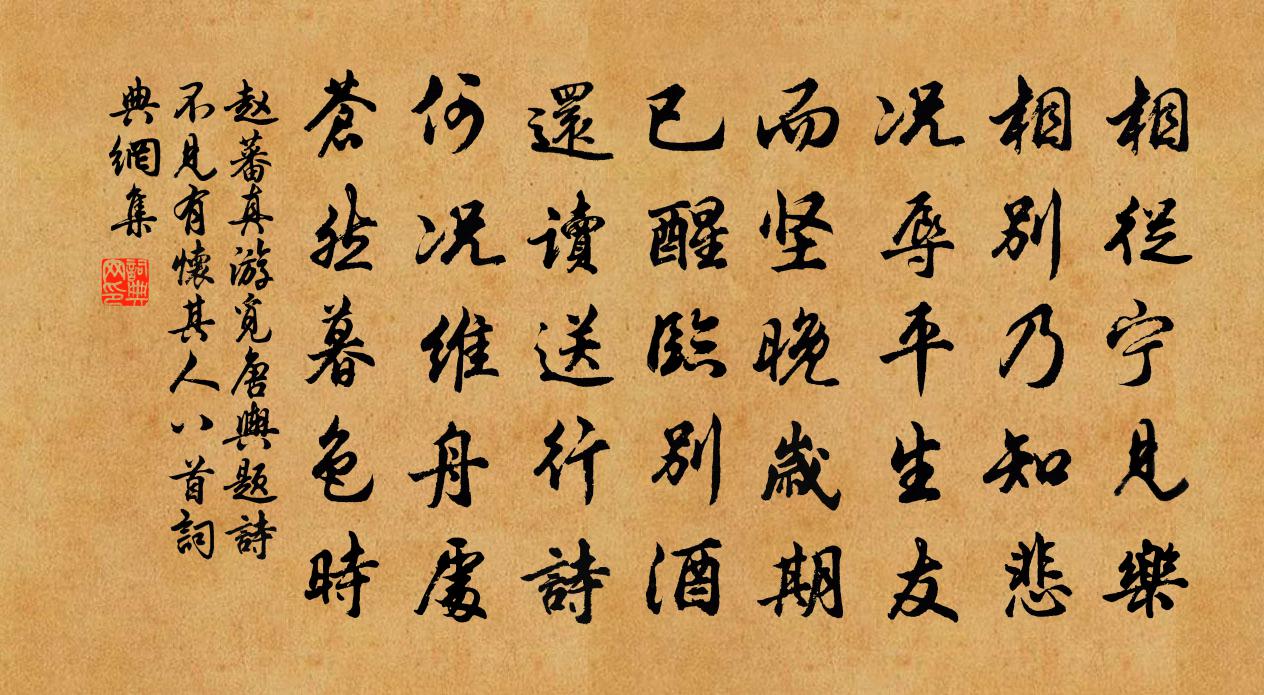 相從宁見樂
相別乃知悲
况辱平生友
而坚晚歲期
已醒臨別酒
還讀送行詩
何况維舟處
蒼然暮色時
赵蕃真游覓唐輿題詩
不見有懷其人八首詞
典網集
詞典
网印